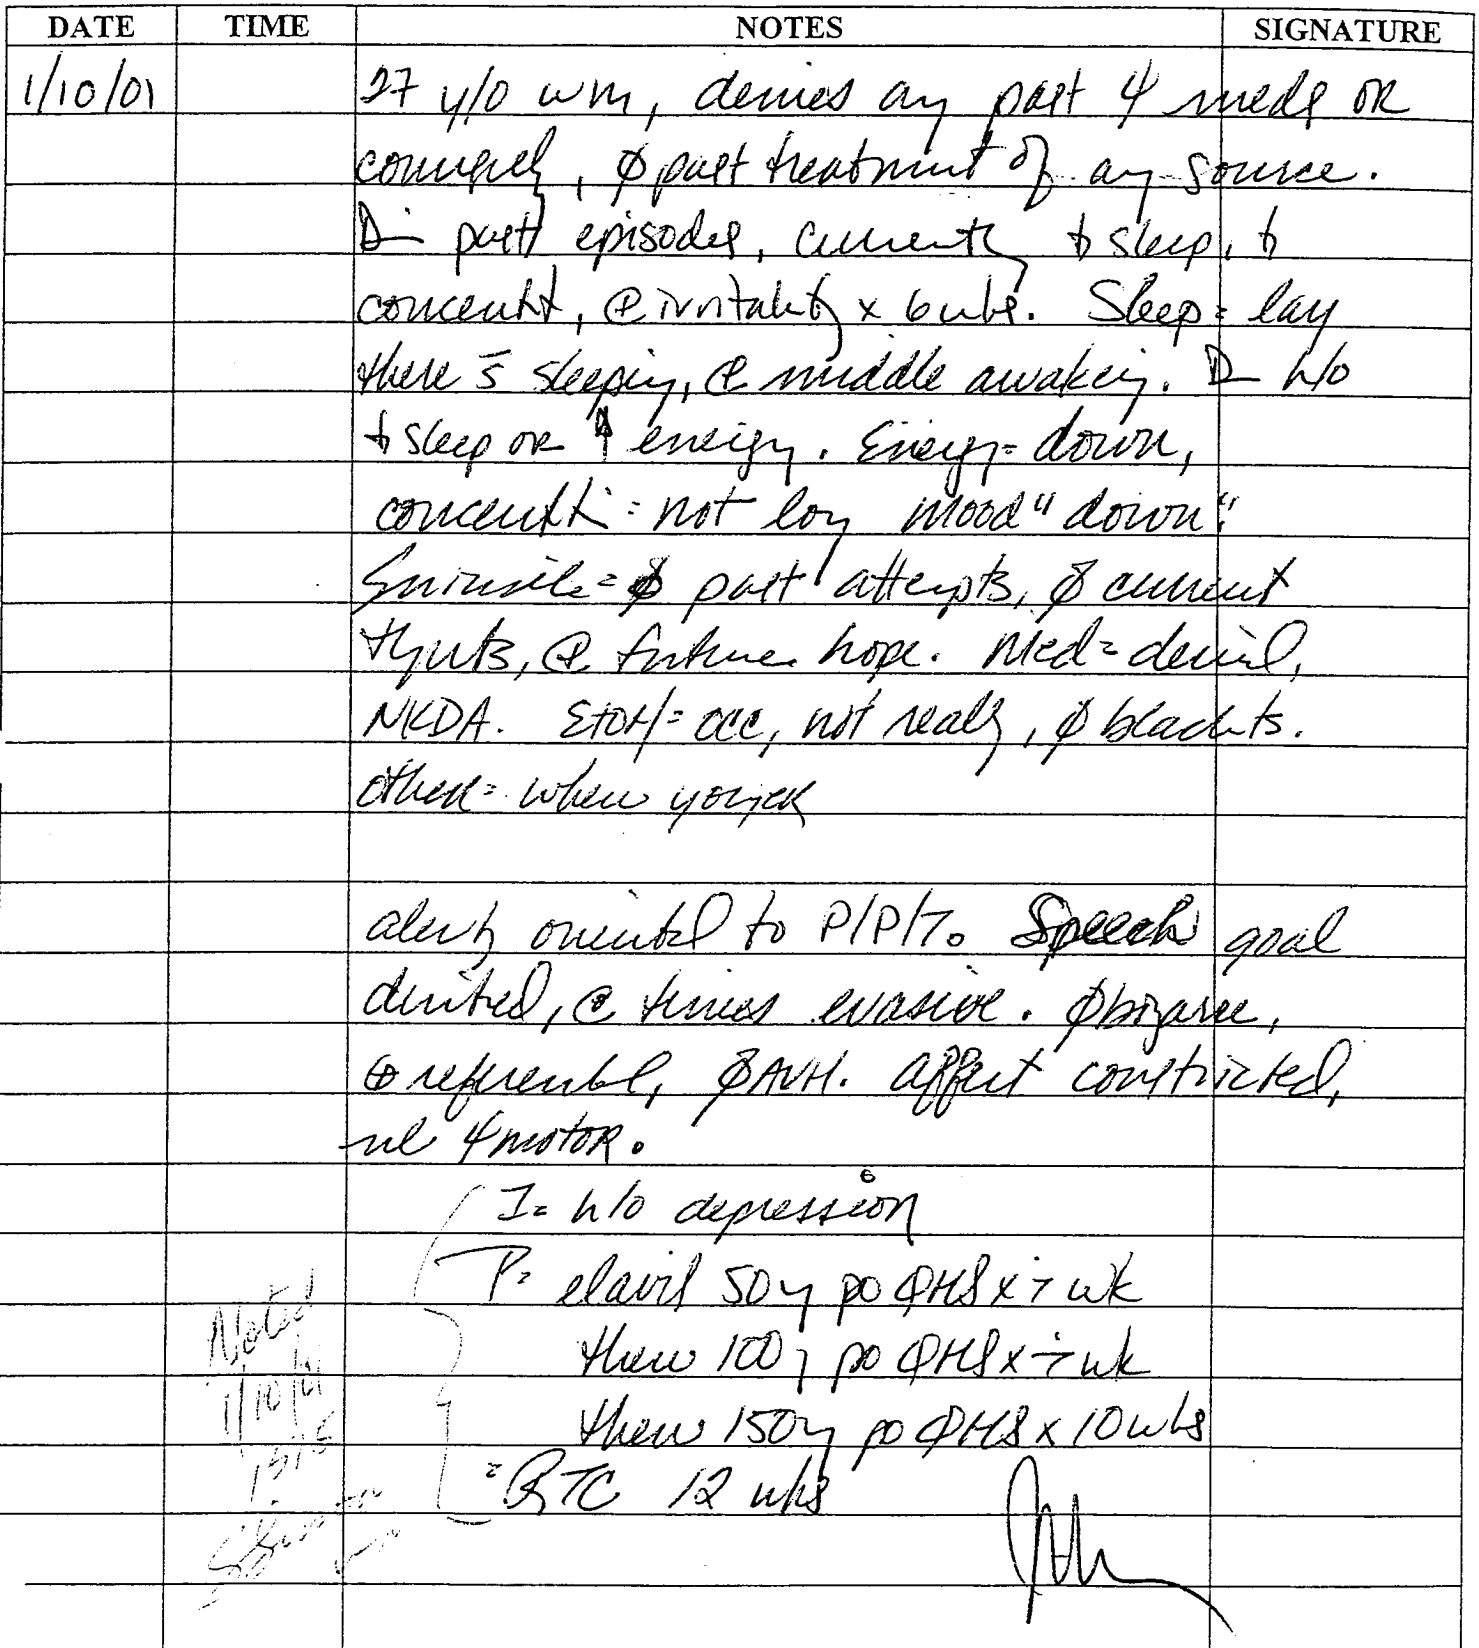 DATE TIME NOTES SIGNATURE
1/10/01 27 y/o wm, denies any past ψ meds or
, Ø past treatment of any source.
past episodes, currently ↓ sleep, ↓
, irritability x 6 wks. Sleep = lay
there s̄ sleeping, middle awakening. h/o
↓ sleep or ↑ energy. Energy = down,
= not long mood "down".
Suicide = Ø past attempts, Ø current
thguts, future hope. Med = denied,
NKDA. EtOH = occ, not really, Ø blackts.
other = when younger
alert, oriented to P/P/T. Speech goal
dirited, @ times evasive. Ø bizarre,
referential, Ø AVH. affect constricted,
nl ψmotor.
I = h/o depression
P = elavil 50mg po QHS x i wk
then 100mg po QHS x i wk
then 150mg po QHS x 10 wks
= RTC 12 wks
Noted
1/10/01